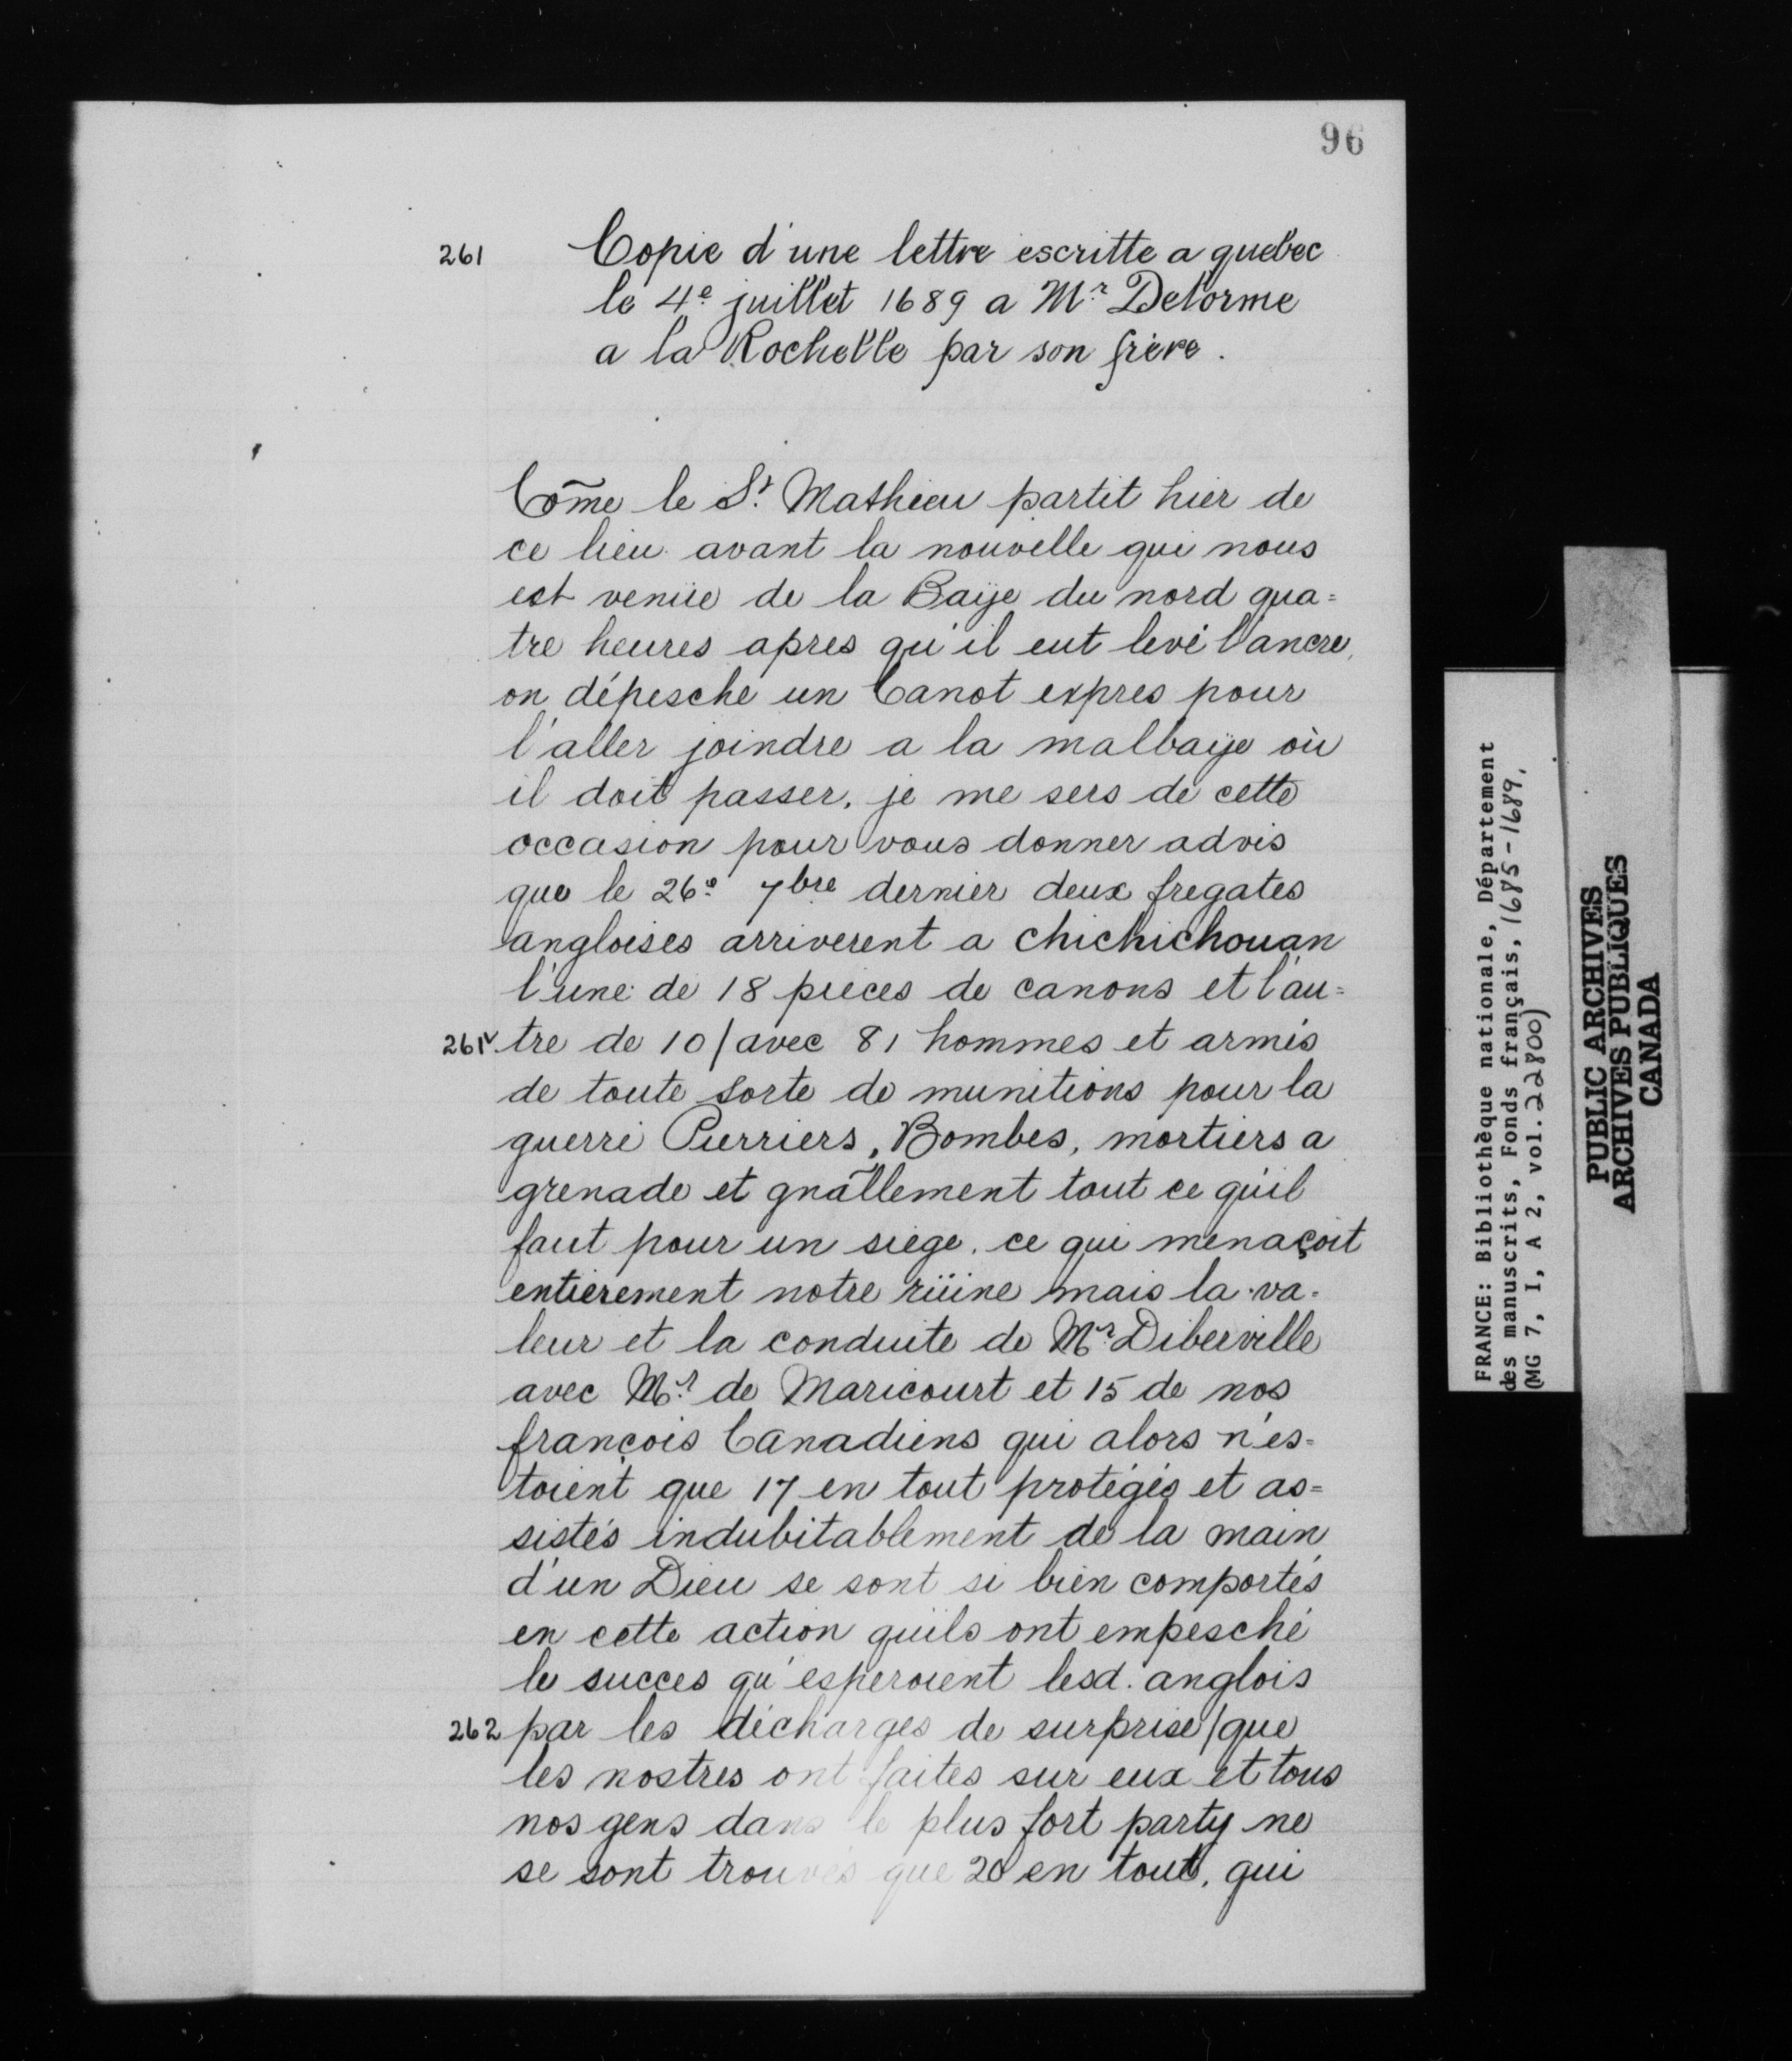 96
261 Copie d'une lettre escritte a quebec
le 4e juillet 1689 a Mr Delorme
a la Rochelle par son frère.
Cōme le St Mathieu partit hier de
ce lieu avant la nouvelle qui nous
est venüe de la Baÿe du nord qua=
tre heures apres qu'il eut levé l'ancre,
on dépesche un Canot expres pour
l'aller joindre a la malbaÿe où
il doit passer. je me sers de cette
occasion pour vous donner advis
que le 26e 7bre dernier deux fregates
angloises arriverent a chichichouan
l'une de 18 pieces de canons et l'au=
261v tre de 10/avec 81 hommes et armés
de toute sorte de munitions pour la
guerre Pierriers, Bombes, mortiers a
grenade et gnāllement tout ce qu'il
faut pour un siege. ce qui menaçoit
entierement notre rüine mais la va-
leur et la conduite de Mr Diberville
avec Mr de Maricourt et 15 de nos
françois Canadiens qui alors n'es=
toient que 17 en tout protégés et as=
sistés indubitablement de la main
d'un Dieu se sont si bien comportés
en cette action qu'ils ont empesché
le succes qu'esperoient lesd. anglois
262 par les décharges de surprise/que
les nostres ont faites sur eux et tous
nos gens dans le plus fort party ne
se sont trouvés que 20 en tout, qui
FRANCE: Bibliothèque nationale, Département
des manuscrits, Fonds français, 1685-1689.
(MG 7, I, A 2, vol. 22800)
PUBLIC ARCHIVES
ARCHIVES PUBLIQUES
CANADA